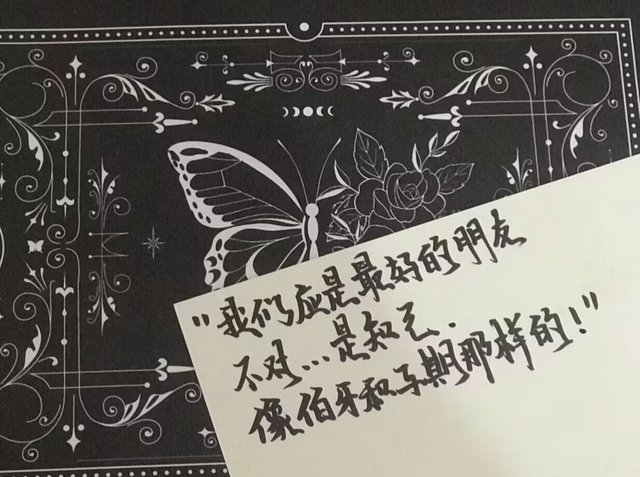 "我们应是最好的朋友
不对...是知己.
像伯牙和子期那样的!"